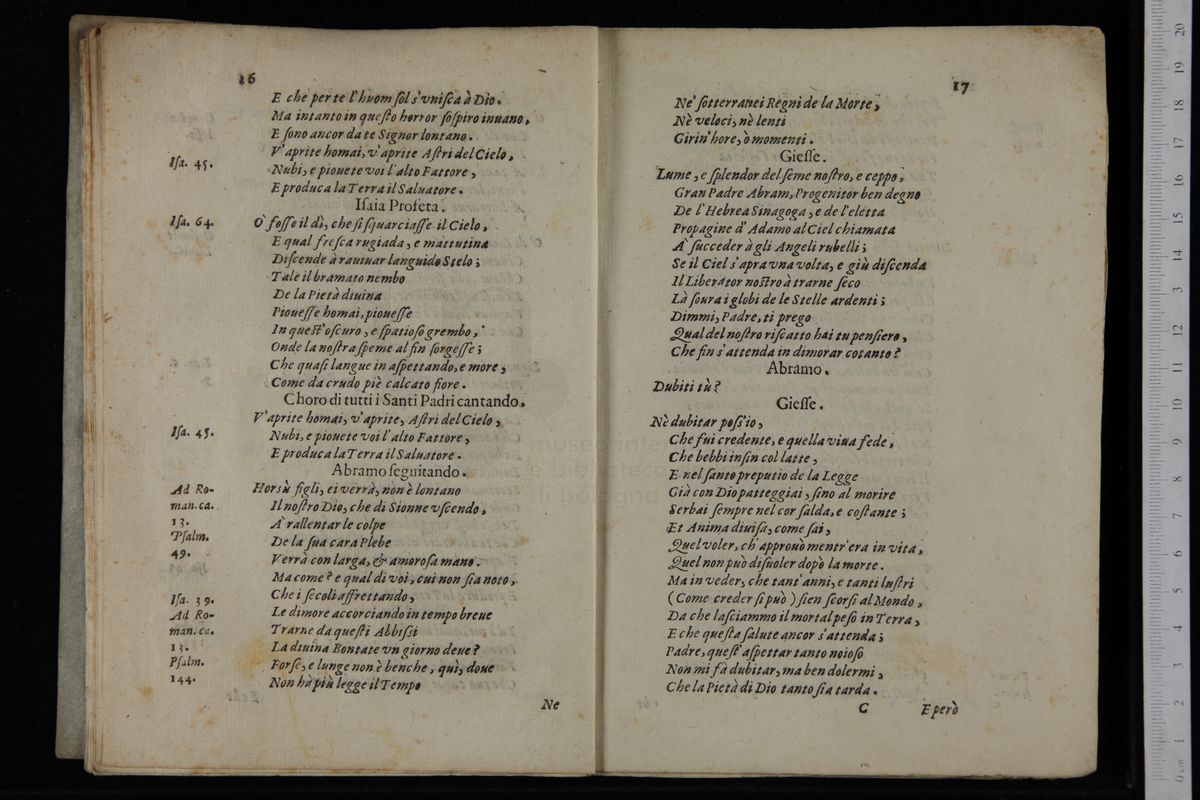 16
E che per te l'huom sol s'vnisca à Dio.
Ma intanto in questo horror sospiro inuano,
E sono ancor da te Signor lontano.
V'aprite homai, v'aprite Astri del Cielo,
Isa. 45.
Nubi, e piouete voi l'alto Fattore,
E produca la Terra il Saluatore.
Isaia Profeta.
Isa. 64.
O' fosse il dì, che si squarciasse il Cielo,
E qual fresca rugiada, e mattutina
Discende à rauiuar languido Stelo;
Tale il bramato nembo
De la Pietà diuina
Piouesse homai, piouesse
In quest'oscuro, e spatioso grembo,
Onde la nostra speme al fin sorgesse;
Che quasi langue in aspettando, e more,
Come da crudo piè calcato fiore.
Choro di tutti i Santi Padri cantando.
V'aprite homai, v'aprite, Astri del Cielo,
Isa. 45.
Nubi, e piouete voi l'alto Fattore,
E produca la Terra il Saluatore.
Abramo seguitando.
Ad Ro-
Horsù figli, ei verrà, non è lontano
man. ca.
Il nostro Dio, che di Sionne vscendo,
13.
A' rallentar le colpe
Psalm.
De la sua cara Plebe
49.
Verrà con larga, & amorosa mano.
Ma come? e qual di voi, cui non sia noto,
Isa. 39.
Che i secoli affrettando,
Ad Ro-
Le dimore accorciando in tempo breue
man. ca.
Trarne da questi Abbissi
13.
La diuina Bontate vn giorno deue?
Psalm.
Forse, e lunge non è benche, quì, doue
144.
Non hà più legge il Tempo
Ne
17
Ne' sotterranei Regni de la Morte,
Nè veloci, nè lenti
Girin' hore, ò momenti.
Giesse.
Lume, e splendor del seme nostro, e ceppo,
Gran Padre Abram, Progenitor ben degno
De l'Hebrea Sinagoga, e de l'eletta
Propagine d'Adamo al Ciel chiamata
A' succeder à gli Angeli rubelli;
Se il Ciel s'apra vna volta, e giù discenda
Il Liberator nostro à trarne seco
Là soura i globi de le Stelle ardenti;
Dimmi, Padre, ti prego
Qual del nostro riscatto hai tu pensiero,
Che fin s'attenda in dimorar cotanto?
Abramo.
Dubiti tù?
Giesse.
Nè dubitar poss'io,
Che fui credente, e quella viua fede,
Che bebbi insin col latte,
E nel santo preputio de la Legge
Già con Dio patteggiai, sino al morire
Serbai sempre nel cor salda, e costante;
Et Anima diuisa, come sai,
Quel voler, ch'approuò mentr'era in vita,
Quel non può disuoler dopò la morte.
Ma in veder, che tant'anni, e tanti lustri
(Come creder si può) sien scorsi al Mondo,
Da che lasciammo il mortal peso in Terra,
E che questa salute ancor s'attenda;
Padre, quest'aspettar tanto noioso
Non mi fà dubitar, ma ben dolermi,
Che la Pietà di Dio tanto sia tarda.
C
E però